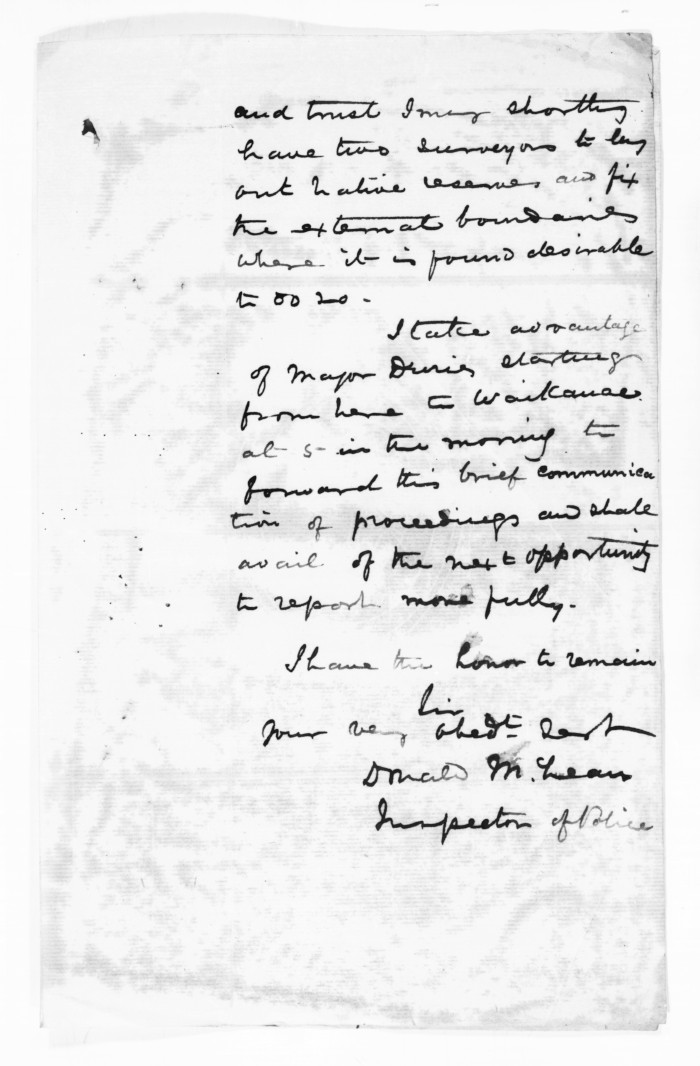 and trust I may shortly
have two surveyors to lay
out Native reserves and fix
the external boundaries
where it is found desirable
to do so -
I take advantage
of Major Duries starting
from here to Waikanae
at 5 in the morning to
forward this brief communica
tion of proceedings and shall
avail of the next opportunity
to report more fully.
I have the honor to remain
Sir
your very obedt. Servt
Donald McLean
Inspector of Police